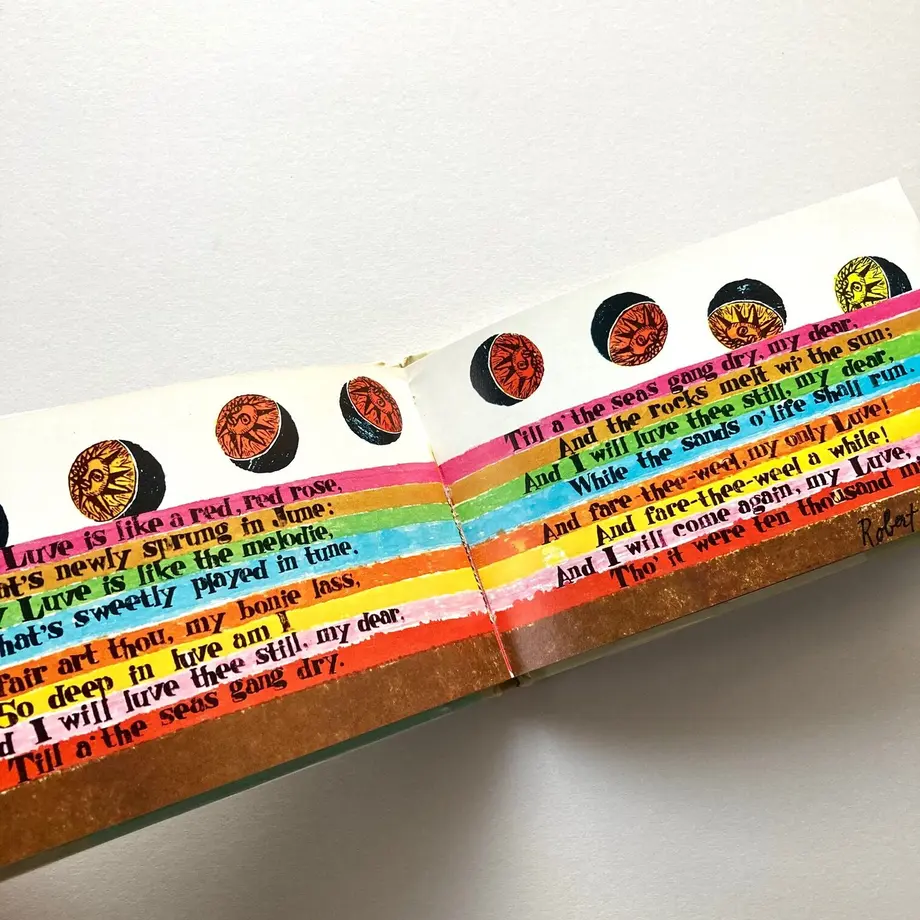 Luve is like a red, red rose,
at's newly sprung in June:
y Luve is like the melodie,
hat's sweetly played in tune.
fair art thou, my bonie lass,
So deep in luve am I
d I will luve thee still, my dear,
Till a' the seas gang dry.
Till a' the seas gang dry, my dear,
And the rocks melt wi' the sun;
And I will luve thee still, my dear,
While the sands o' life shall run.
And fare-thee-weel, my only Luve!
And fare-thee-weel a while!
And I will come again, my Luve,
Tho' it were ten thousand mi
Robert